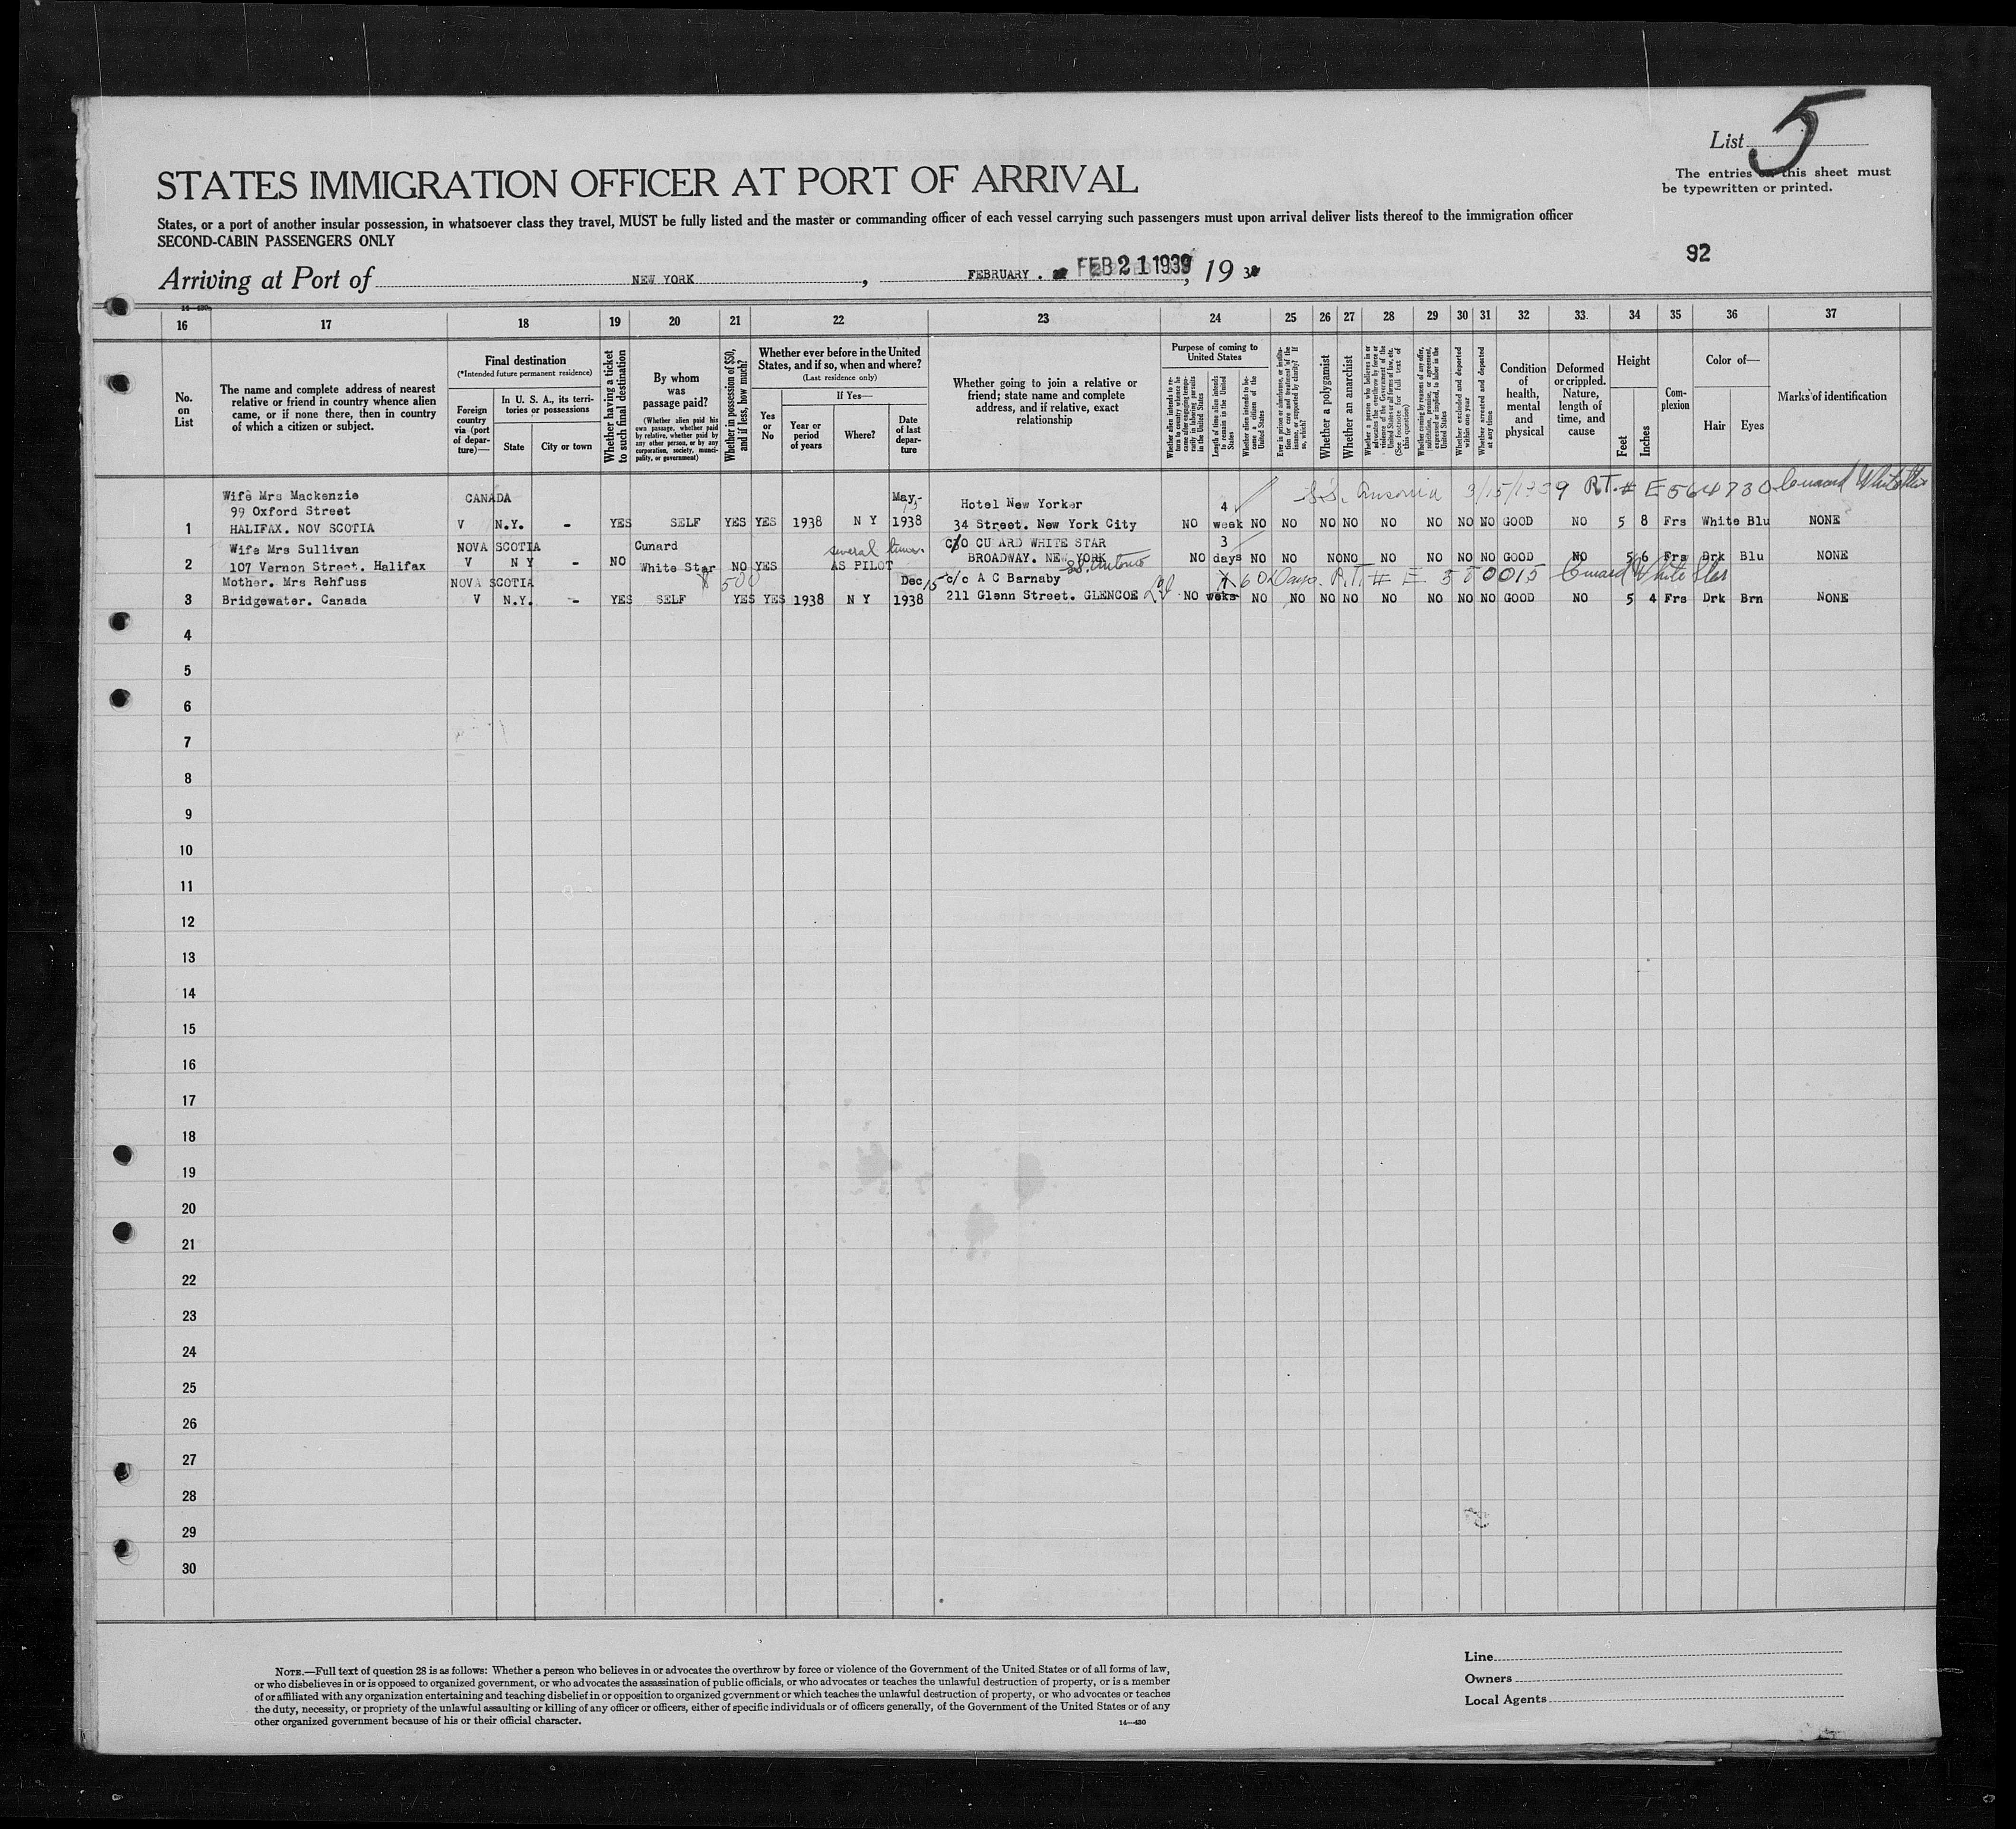 List 5
The entries on this sheet must
be typewritten or printed.
STATES IMMIGRATION OFFICER AT PORT OF ARRIVAL
States, or a port of another insular possession, in whatsoever class they travel, MUST be fully listed and the master or commanding officer of each vessel carrying such passengers must upon arrival deliver lists thereof to the immigration officer
SECOND-CABIN PASSENGERS ONLY
92
Arriving at Port of NEW YORK, FEBRUARY. FEB 21 1939, 19 3
14—430
16 17 18 19 20 21 22 23 24 25 26 27 28 29 30 31 32 33 34 35 36 37
No. on List
The name and complete address of nearest relative or friend in country whence alien came, or if none there, then in country of which a citizen or subject.
Final destination
(*Intended future permanent residence)
Foreign country via (port of departure)—
In U. S. A., its territories or possessions
State
City or town
Whether having a ticket to such final destination
By whom was passage paid?
(Whether alien paid his own passage, whether paid by relative, whether paid by any other person, or by any corporation, society, municipality, or government)
Whether in possession of $50, and if less, how much?
Whether ever before in the United States, and if so, when and where?
(Last residence only)
Yes or No
If Yes—
Year or period of years
Where?
Date of last departure
Whether going to join a relative or friend; state name and complete address, and if relative, exact relationship
Purpose of coming to United States
Whether alien intends to return to country whence he came after engaging temporarily in laboring pursuits in the United States
Length of time alien intends to remain in the United States
Whether alien intends to become a citizen of the United States
Ever in prison or almshouse, or institution for care and treatment of the insane, or supported by charity? If so, which?
Whether a polygamist
Whether an anarchist
Whether a person who believes in or advocates the overthrow by force or violence of the Government of the United States or all forms of law, etc. (See footnote for full text of this question)
Whether coming by reasons of any offer, solicitation, promise, or agreement, expressed or implied, to labor in the United States
Whether excluded and deported within one year
Whether arrested and deported at any time
Condition of health, mental and physical
Deformed or crippled. Nature, length of time, and cause
Height
Feet
Inches
Complexion
Color of—
Hair
Eyes
Marks of identification
Wife Mrs Mackenzie CANADA May,- 15 Hotel New Yorker 4 S.S. Ausonia 3/15/1939 R.T. # E564730 Cunard White Star
99 Oxford Street
1 HALIFAX. NOV SCOTIA V N.Y. - YES SELF YES YES 1938 N Y 1938 34 Street. New York City NO week NO NO NO NO NO NO NO NO GOOD NO 5 8 Frs White Blu NONE
Wife Mrs Sullivan NOVA SCOTIA Cunard several times. C/O CU ARD WHITE STAR 3
2 107 Vernon Street. Halifax V N Y - NO White Star NO YES AS PILOT BROADWAY. NEW YORK NO days NO NO NO NO NO NO NO NO GOOD NO 5 6 Frs Drk Blu NONE
Mother. Mrs Rehfuss NOVA SCOTIA $500 Dec 15 c/c A C Barnaby 60 Days. R.T. # E 550015 Cunard White Star
3 Bridgewater. Canada V N.Y. - YES SELF YES YES 1938 N Y 1938 211 Glenn Street. GLENCOE NO weks NO NO NO NO NO NO NO NO GOOD NO 5 4 Frs Drk Brn NONE
4
5
6
7
8
9
10
11
12
13
14
15
16
17
18
19
20
21
22
23
24
25
26
27
28
29
30
NOTE.—Full text of question 28 is as follows: Whether a person who believes in or advocates the overthrow by force or violence of the Government of the United States or of all forms of law,
or who disbelieves in or is opposed to organized government, or who advocates the assassination of public officials, or who advocates or teaches the unlawful destruction of property, or is a member
of or affiliated with any organization entertaining and teaching disbelief in or opposition to organized government or which teaches the unlawful destruction of property, or who advocates or teaches
the duty, necessity, or propriety of the unlawful assaulting or killing of any officer or officers, either of specific individuals or of officers generally, of the Government of the United States or of any
other organized government because of his or their official character.
14—430
Line
Owners
Local Agents